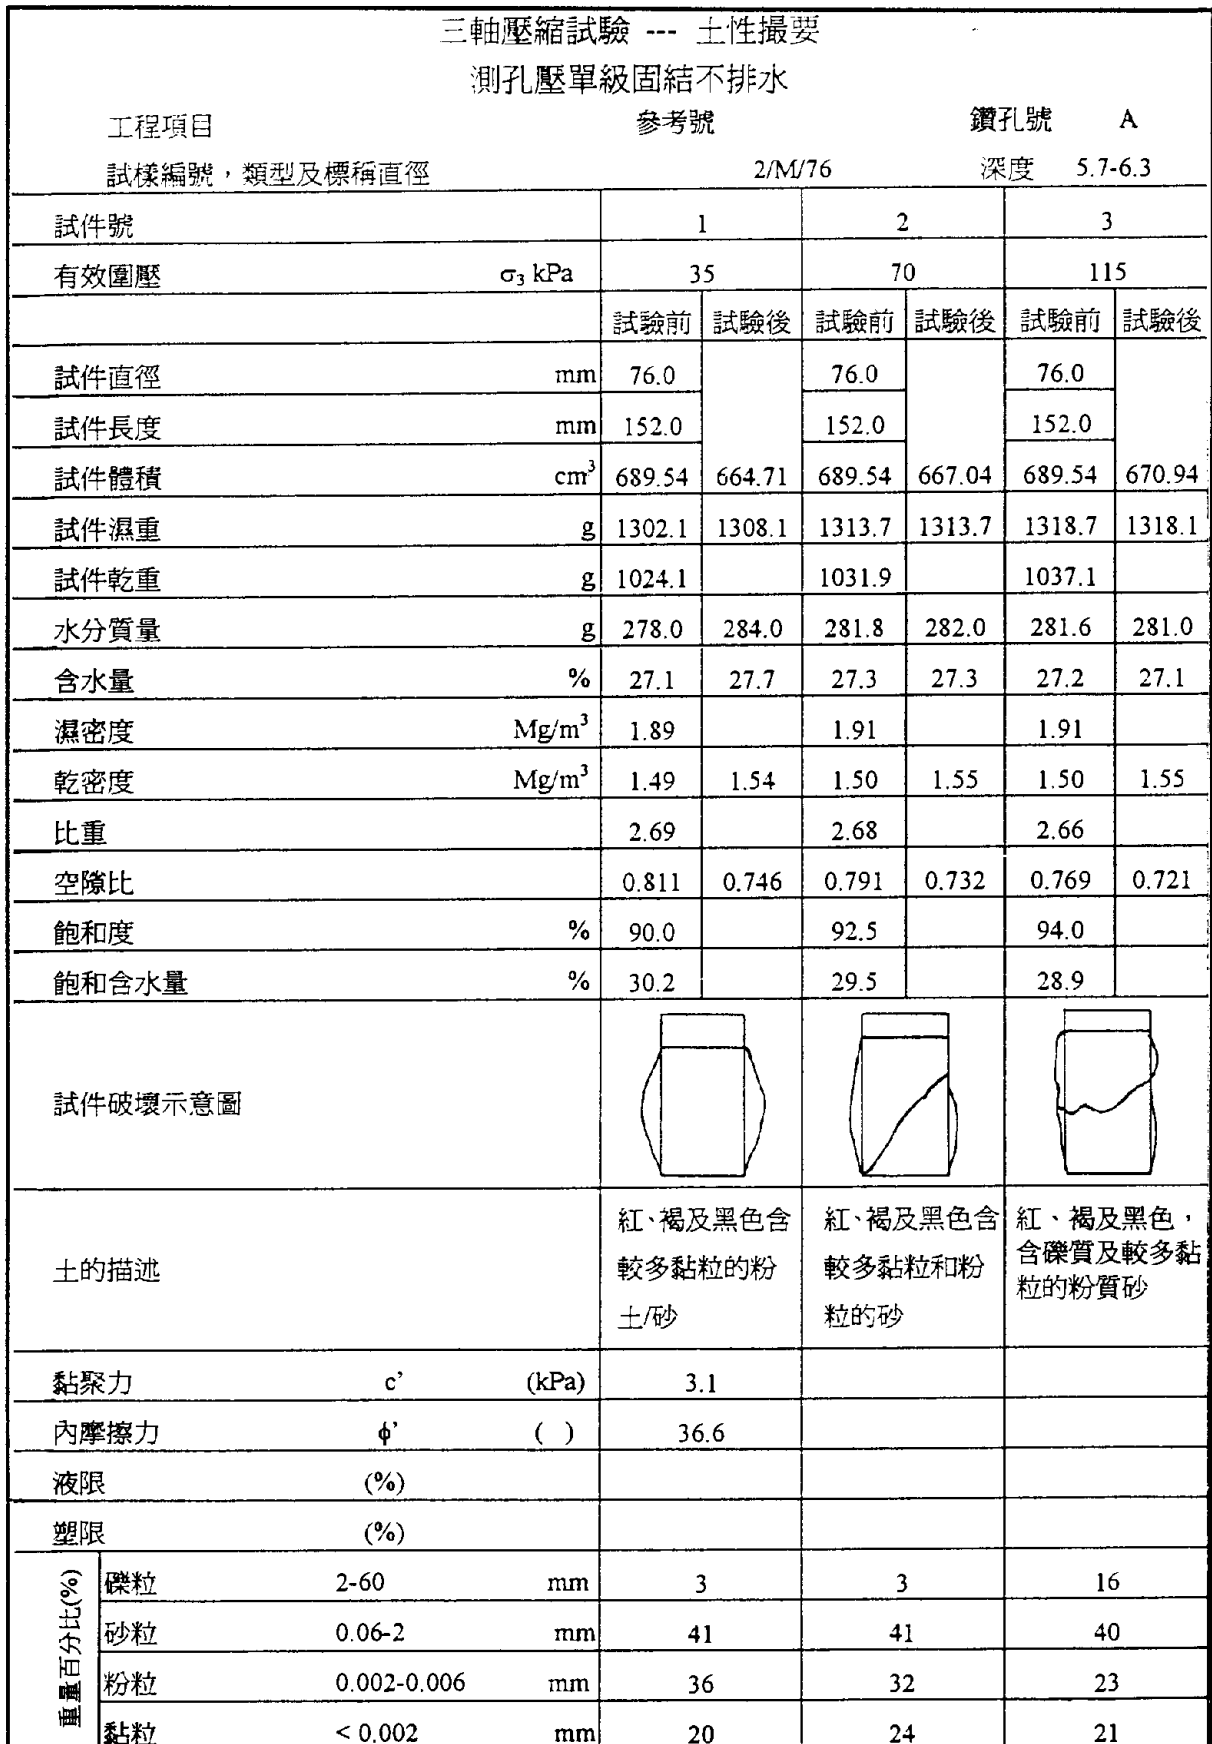 三軸壓縮試驗 --- 土性撮要
測孔壓單級固結不排水
工程項目 參考號 鑽孔號 A
試樣編號，類型及標稱直徑 2/M/76 深度 5.7-6.3
試件號 1 2 3
有效圍壓 σ₃ kPa 35 70 115
試驗前 試驗後 試驗前 試驗後 試驗前 試驗後
試件直徑 mm 76.0 76.0 76.0
試件長度 mm 152.0 152.0 152.0
試件體積 cm³ 689.54 664.71 689.54 667.04 689.54 670.94
試件濕重 g 1302.1 1308.1 1313.7 1313.7 1318.7 1318.1
試件乾重 g 1024.1 1031.9 1037.1
水分質量 g 278.0 284.0 281.8 282.0 281.6 281.0
含水量 % 27.1 27.7 27.3 27.3 27.2 27.1
濕密度 Mg/m³ 1.89 1.91 1.91
乾密度 Mg/m³ 1.49 1.54 1.50 1.55 1.50 1.55
比重 2.69 2.68 2.66
空隙比 0.811 0.746 0.791 0.732 0.769 0.721
飽和度 % 90.0 92.5 94.0
飽和含水量 % 30.2 29.5 28.9
試件破壞示意圖
土的描述
紅、褐及黑色含
較多黏粒的粉
土/砂
紅、褐及黑色含
較多黏粒和粉
粒的砂
紅、褐及黑色，
含礫質及較多黏
粒的粉質砂
黏聚力 c’ (kPa) 3.1
內摩擦力 ϕ’ ( ) 36.6
液限 (%)
塑限 (%)
重量百分比(%)
礫粒 2-60 mm 3 3 16
砂粒 0.06-2 mm 41 41 40
粉粒 0.002-0.006 mm 36 32 23
黏粒 < 0.002 mm 20 24 21